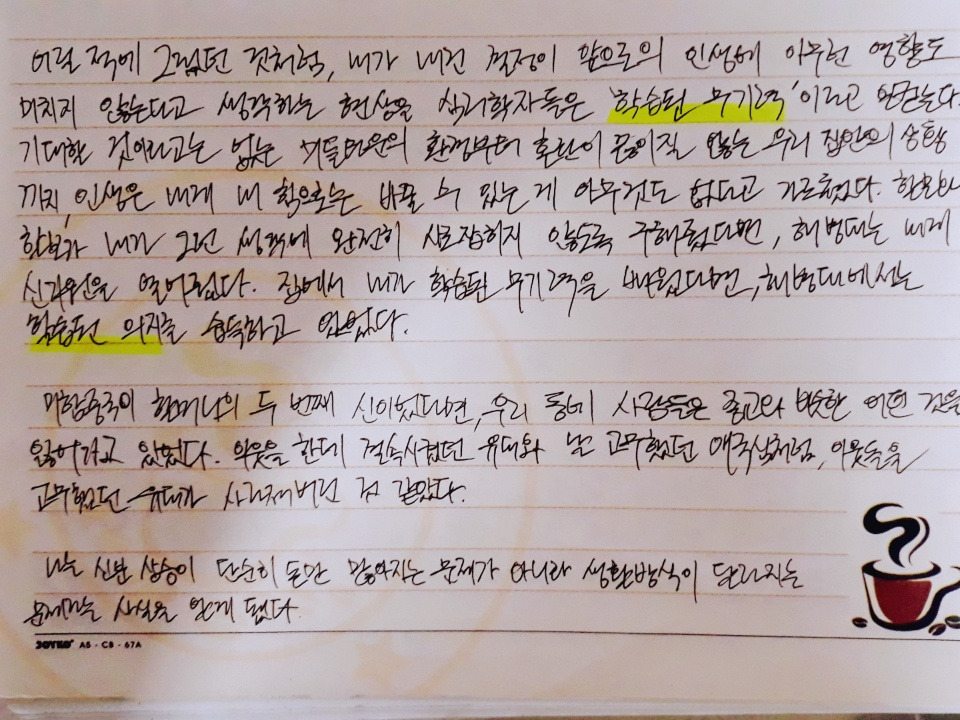 어릴 적에 그랬던 것처럼, 내가 내린 결정이 앞으로의 인생에 아무런 영향도
미치지 않는다고 생각하는 현상을 심리학자들은 '학습된 무기력'이라고 부른다.
기대할 것이라고는 없는 미들타운의 환경부터 혼란이 끊이질 않는 우리 집안의 상황
까지, 인생은 내게 내 힘으로는 바꿀 수 있는 게 아무것도 없다고 가르쳤다. 할모와
할보가 내가 그런 생각에 완전히 사로잡히지 않도록 구해줬다면, 해병대는 내게
신기원을 열어줬다. 집에서 내가 학습된 무기력을 배웠다면, 해병대에서는
학습된 의지를 습득하고 있었다.
미합중국이 할머니의 두 번째 신이었다면, 우리 동네 사람들은 종교와 비슷한 어떤 것을
잃어가고 있었다. 이웃을 한데 결속시켰던 유대와 날 고무했던 애국심처럼, 이웃들을
고무했던 유대가 사라져버린 것 같았다.
나는 신분 상승이 단순히 돈만 많아지는 문제가 아니라 생활방식이 달라지는
문제라는 사실을 알게 됐다.
JOYTEO A5 - CB - 67A